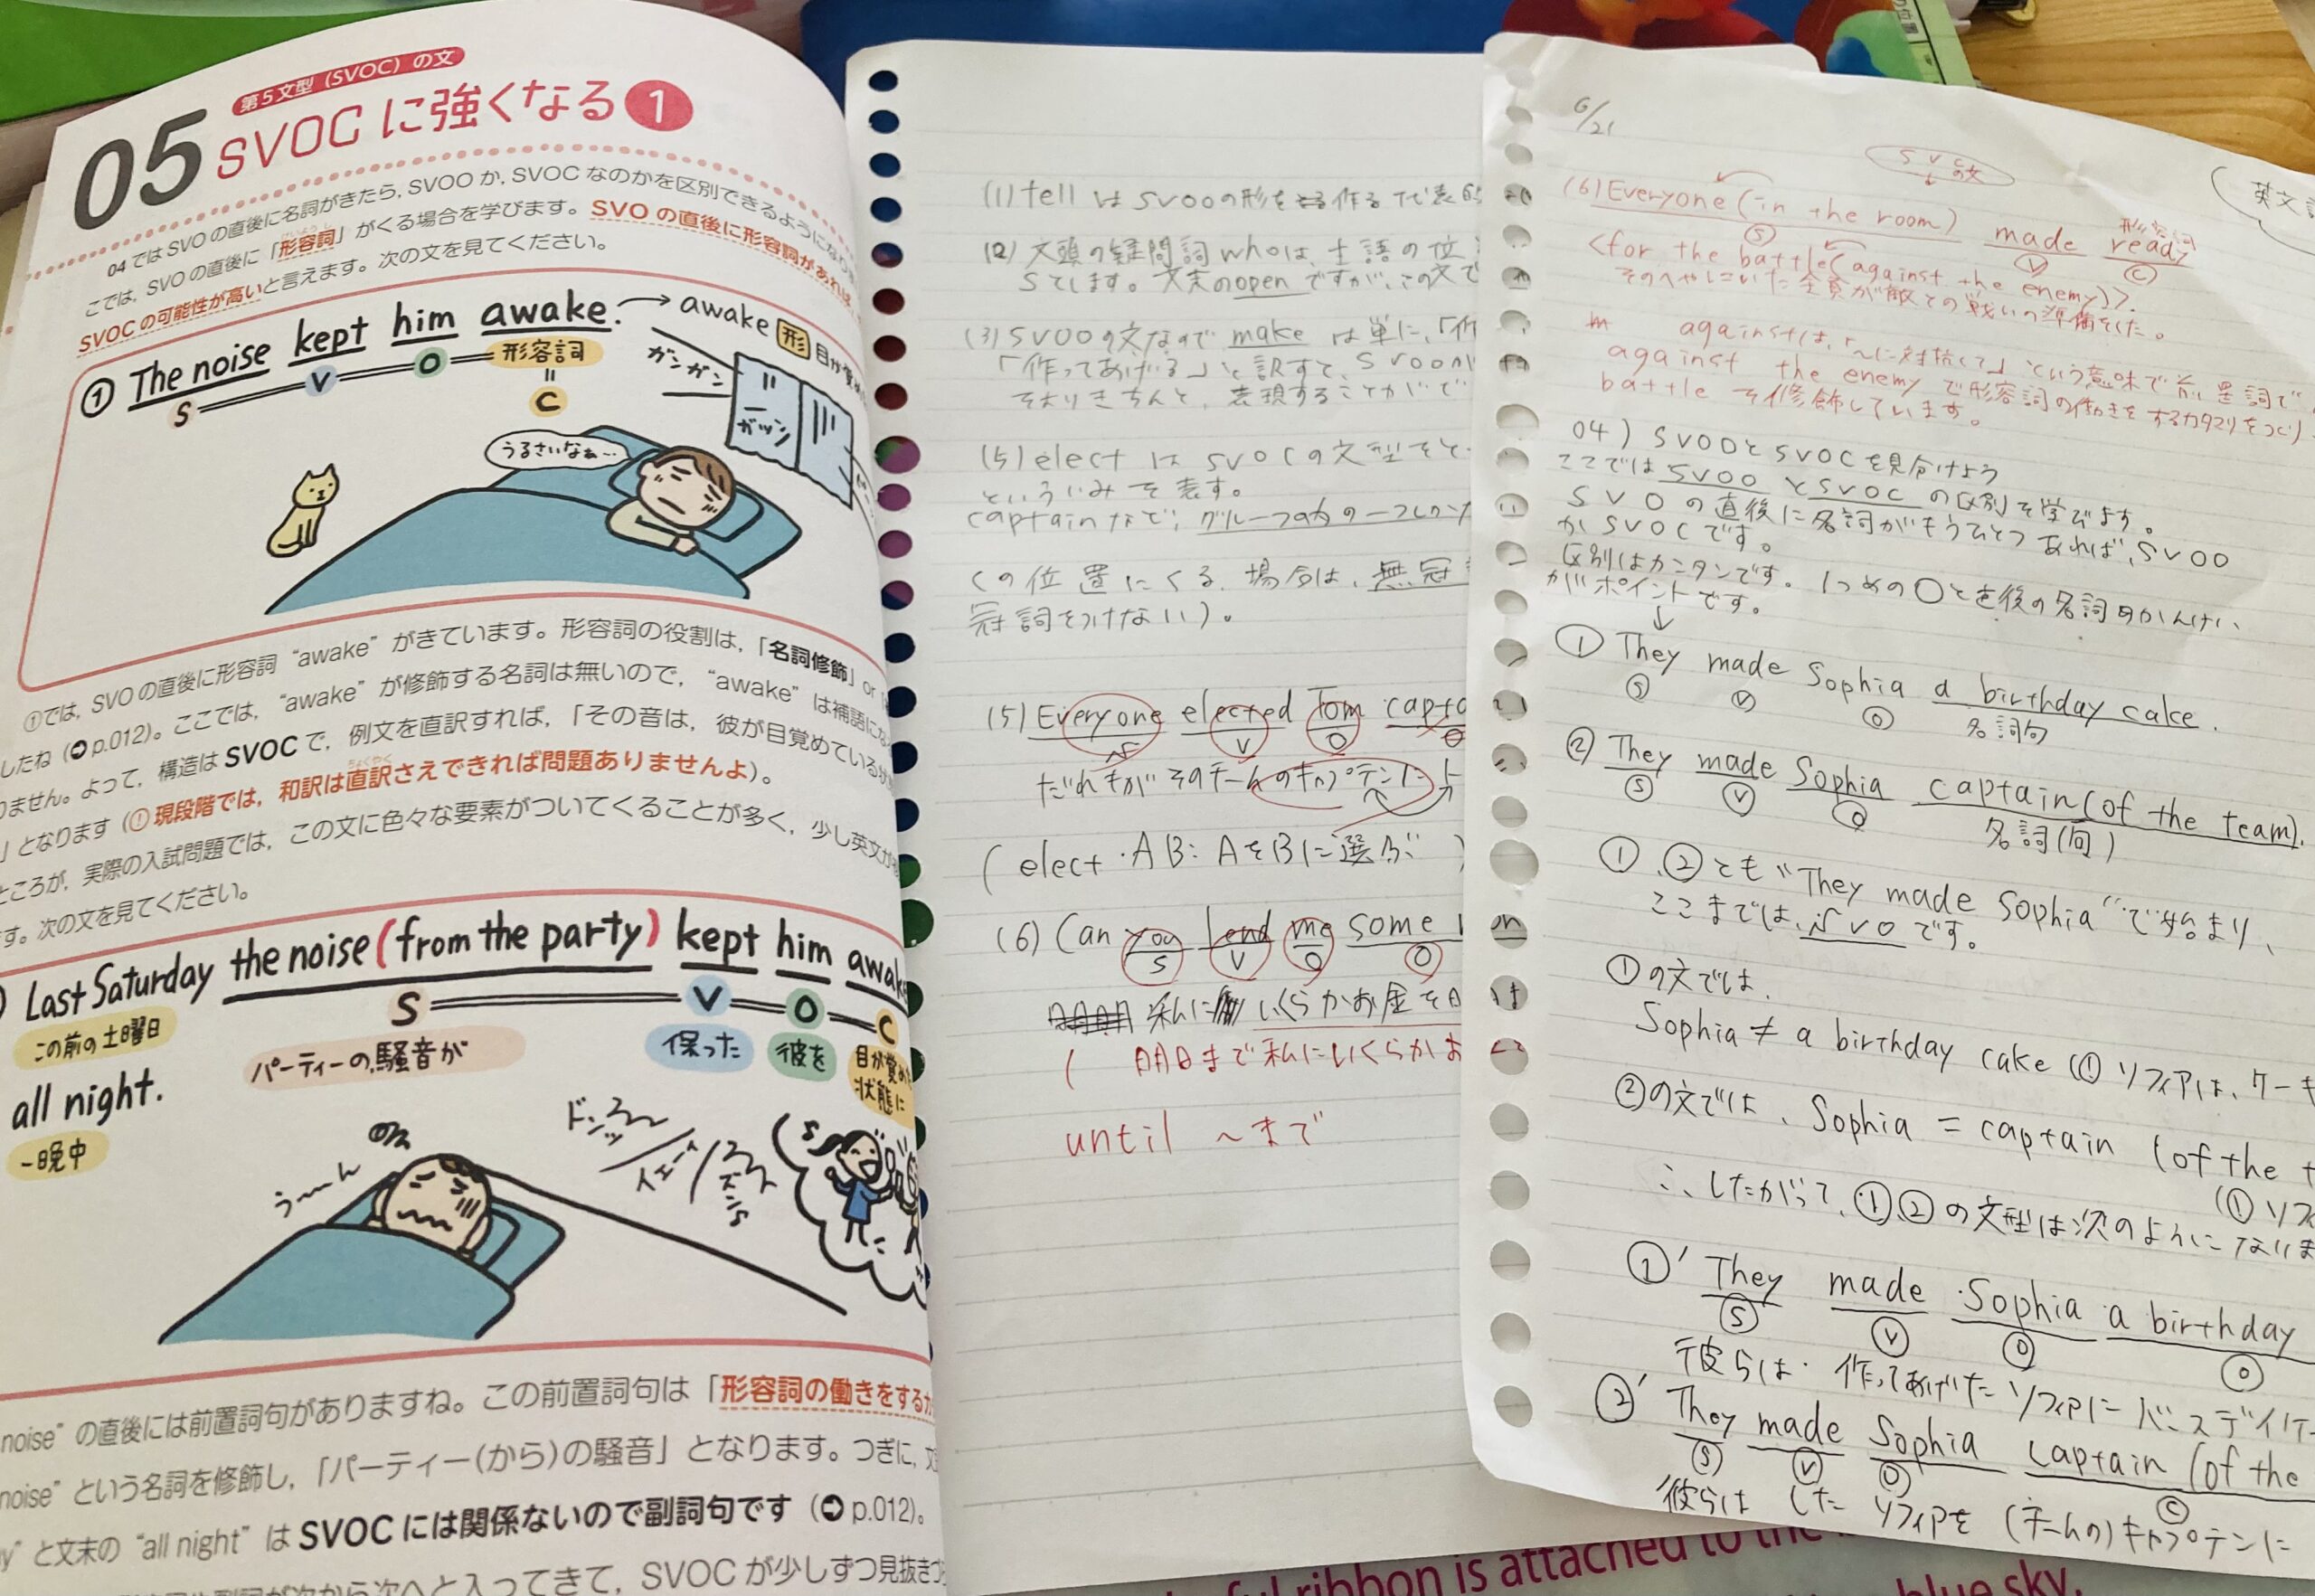 第5文型(SVOC)の文
05 SVOCに強くなる 1
04ではSVOの直後に名詞がきたら，SVOOか，SVOCなのかを区別できるようになり
ここでは，SVOの直後に「形容詞」がくる場合を学びます。SVOの直後に形容詞があれば
SVOCの可能性が高いと言えます。次の文を見てください。
① The noise kept him awake. → awake 形 目が覚め
S V O 形容詞
=
C
ガンガン
ガッツン
うるさいなぁ…
①では，SVOの直後に形容詞 “awake” がきています。形容詞の役割は，「名詞修飾」or
したね（➡p.012）。ここでは，“awake” が修飾する名詞は無いので，“awake” は補語に
りません。よって，構造はSVOCで，例文を直訳すれば，「その音は，彼が目覚めている
」となります（! 現段階では，和訳は直訳さえできれば問題ありませんよ）。
ところが，実際の入試問題では，この文に色々な要素がついてくることが多く，少し英文が
す。次の文を見てください。
Last Saturday the noise (from the party) kept him awake
S V O C
この前の土曜日 パーティーの騒音が 保った 彼を 目が覚めた
状態に
all night.
一晩中
う〜〜ん
noise” の直後には前置詞句がありますね。この前置詞句は「形容詞の働きをするカ
noise” という名詞を修飾し，「パーティー(から)の騒音」となります。つぎに，文
y” と文末の “all night” はSVOCには関係ないので副詞句です（➡p.012）。
次から次へと入ってきて，SVOCが少しずつ見抜きづ
(1) tell は SVOOの形を作る 代表
(2) 文頭の疑問詞 whoは、主語の位
Sでします。文末のopenですが、この文で
(3) SVOOの文なので make は単に、「作
「作ってあげる」と訳すて、SVOOが
をよりきちんと、表現することがで
(5) elect は SVOCの文型をと
といういみ を表す。
captainなど、グループ内の一
Cの位置にくる 場合は、無冠
冠詞をつけない)。
(5) Everyone elected Tom capta
S V O
だれもがそのチームのキャプテンに
(elect ・AB: AをBに選ぶ
(6) Can you lend me some
S V O O
私に いくらかお金を
( 明日まで私にいくらかお
until 〜まで
6/21
SVCの文
英文
(6) Everyone (in the room) made ready
形容詞
S V C
<for the battle (against the enemy)>.
そのへやにいた全員が敵との戦いの準備をした。
againstは、「〜に対抗して」という意味で前置詞で、
against the enemy で形容詞の働きをするカタマリをつくり
battle を修飾しています。
04) SVOOとSVOCを見分けよう
ここではSVOOとSVOCの区別を学びます。
SVOの直後に名詞がもうひとつあれば、SVOO
かSVOCです。
区別はカンタンです。1つめのOと直後の名詞のかんけい
がポイントです。
↓
① They made Sophia a birthday cake.
S V O 名詞句
② They made Sophia captain (of the team).
S V O 名詞(句)
①、②とも “They made Sophia” で始まり、
ここまでは、SVOです。
①の文では、
Sophia ≠ a birthday cake (① ソフィアは、ケーキ
②の文では、Sophia = captain (of the t
(① ソフ
∴したがって、①②の文型は次のようになりま
①′ They made Sophia a birthday
S V O O
彼らは 作ってあげた ソフィアに バースデイケー
②′ They made Sophia captain (of the
S V O C
彼らは した ソフィアを (チームの)キャプテンに
ribbon is attached to the
blue sky.